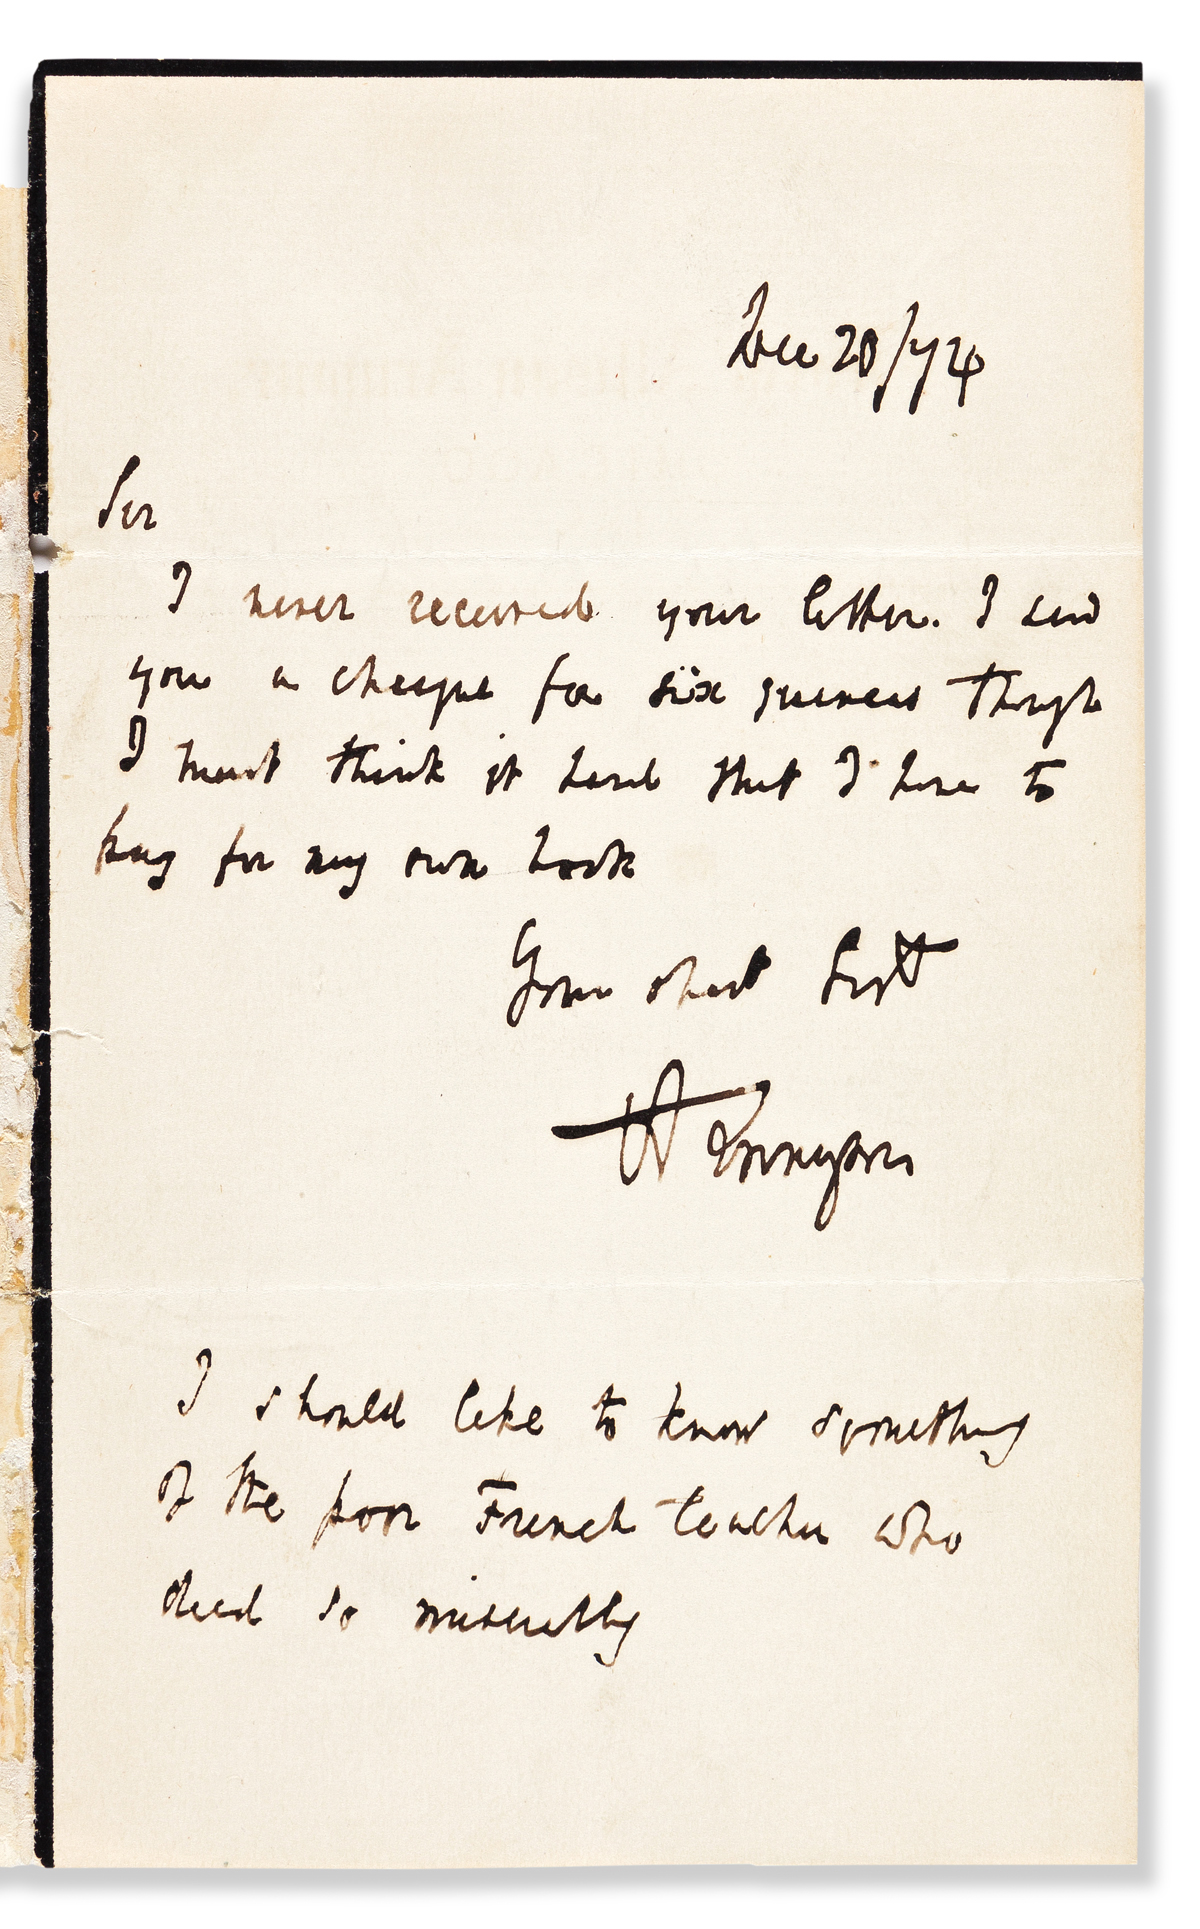 Dec 20/74
Sir
I never received your letter. I send
you a cheque for six guineas though
I must think it hard that I have to
pay for my own book
Your obedt Servt
A Tennyson
I should like to know something
of the poor French teacher who
died so miserably